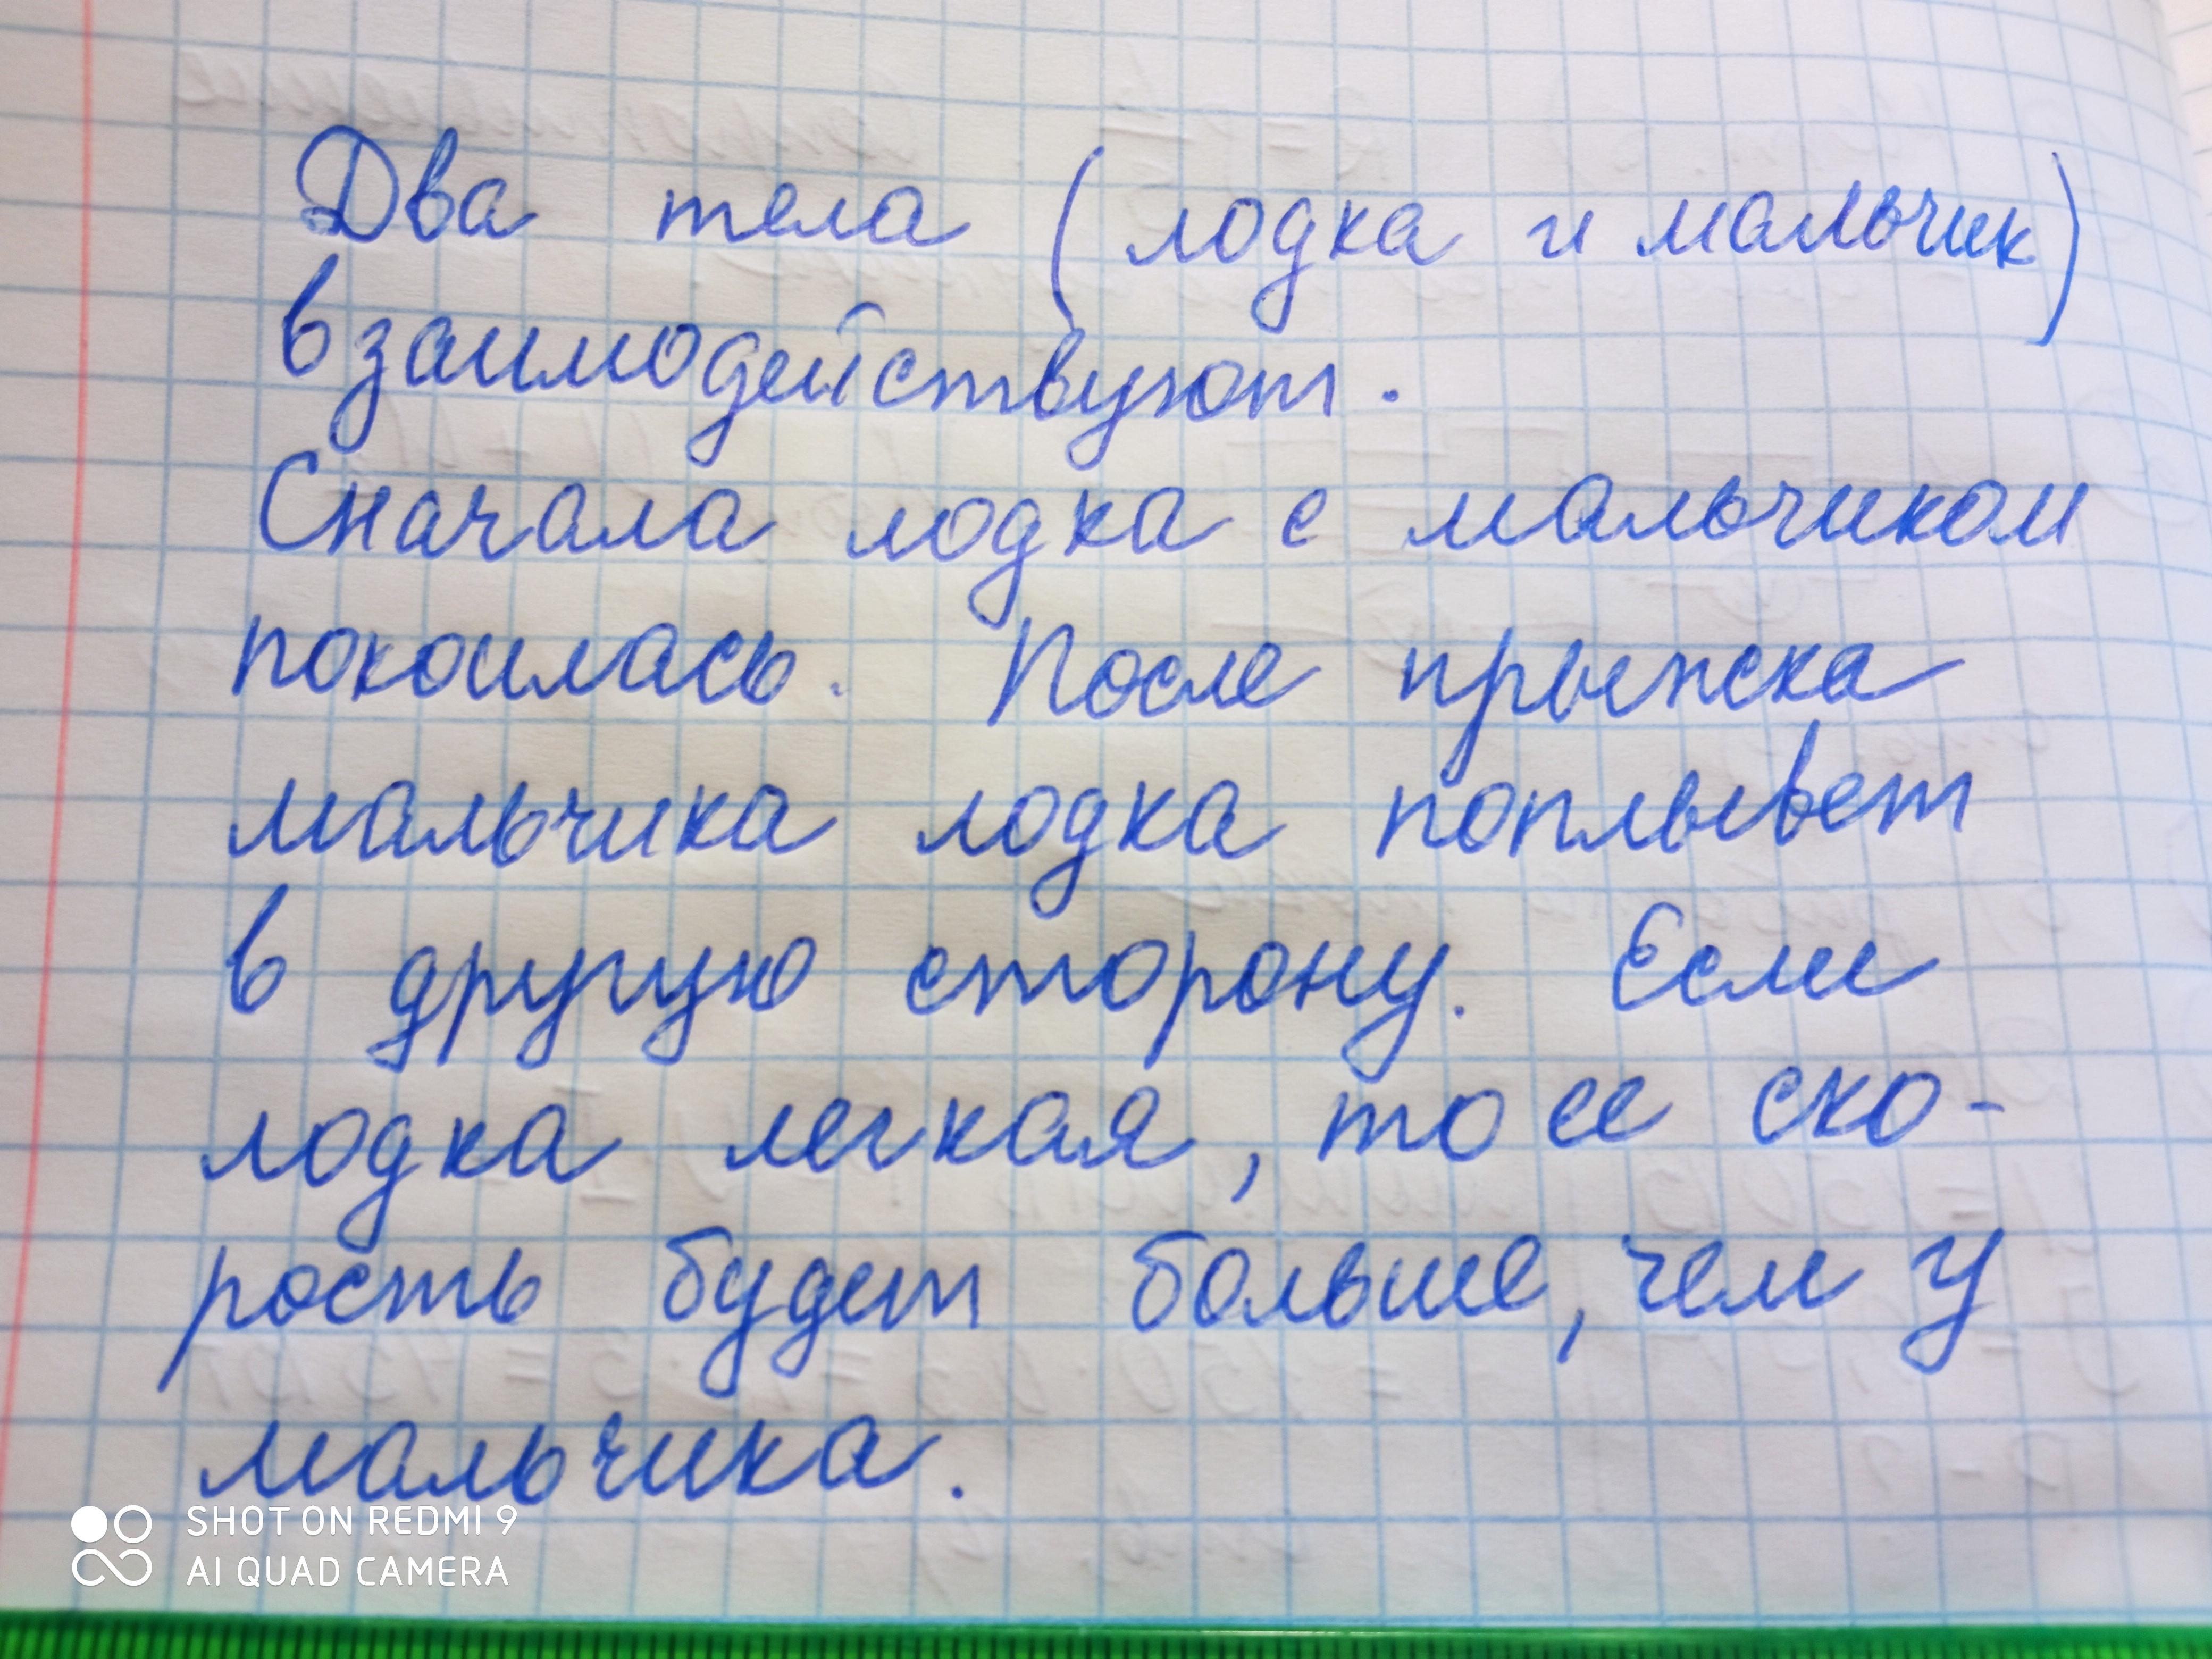 Два тела (лодка и мальчик)
взаимодействуют.
Сначала лодка с мальчиком
покоилась. После прыжка
мальчика лодка поплывет
в другую сторону. Если
лодка легкая, то ее ско-
рость будет больше, чем у
мальчика.
SHOT ON REDMI 9
AI QUAD CAMERA